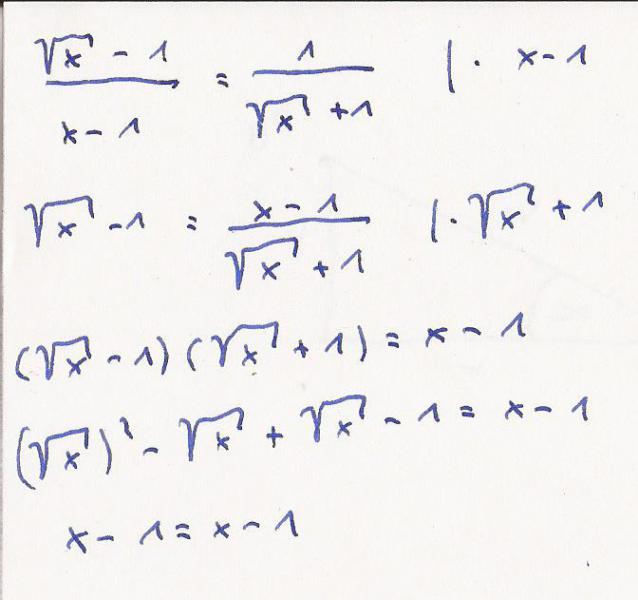 (√x - 1)/(x - 1) = 1/(√x + 1) | · x - 1
√x - 1 = (x - 1)/(√x + 1) | · √x + 1
(√x - 1)(√x + 1) = x - 1
(√x)² - √x + √x - 1 = x - 1
x - 1 = x - 1